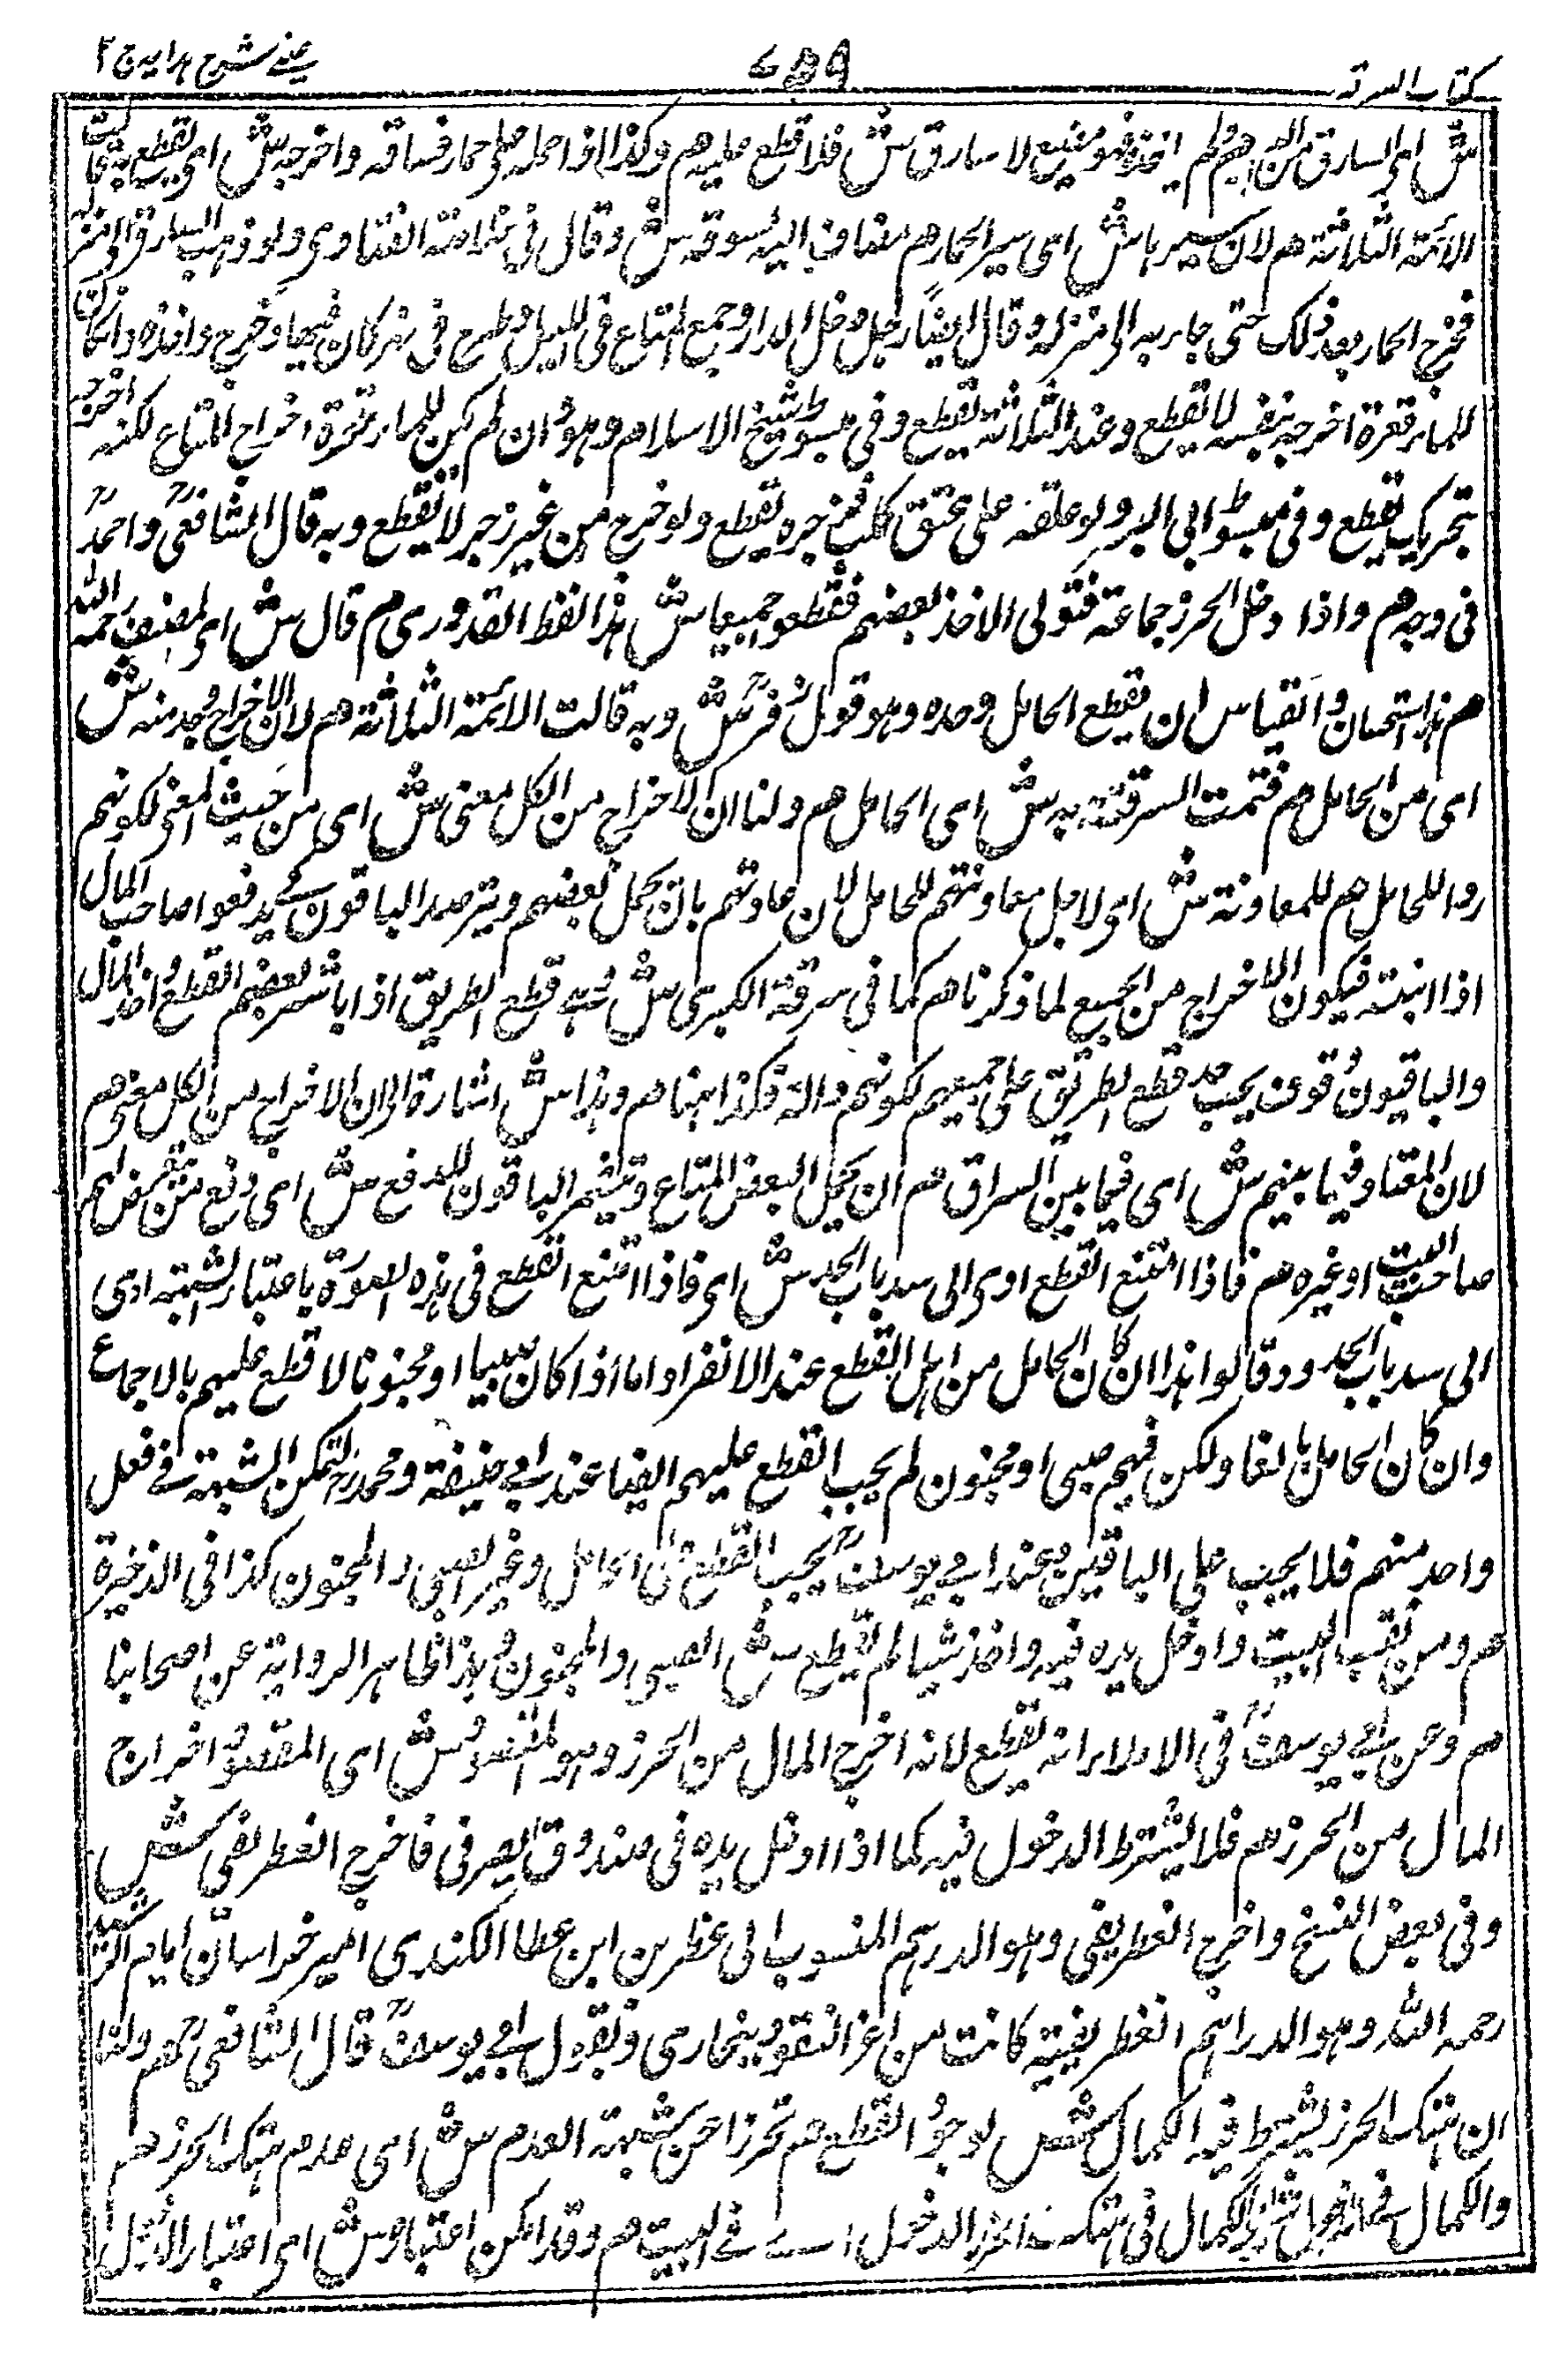 كتاب السرقة
٧٥٩
عینے شرح ہدایہ ج ٢
ش ای السارق من الدار هم ولم یاخذه فهو مضیع لا سارق ش فلا قطع علیه هم وکذا اذا حمله علی حمار فساقه واخرجه ش ای یقطع به قالت
الائمة الثلاثة هم لان سیرها ش ای سیر الحمار هم مضاف الیه لسوقه ش وقال فی خلاصة الفتاوی ولو ذهب السارق الی منزله
فخرج الحمار بعد ذلک حتی جاء به الی منزله وقال ایضا رجل دخل الدار وجمع المتاع فی اللیل وطرح فی نهر کان فیها وخرج واخذه وان کان
للماء قوة اخرجه بنفسه لا یقطع وعند الثلاثة یقطع وفی مبسوط شیخ الاسلام وهو ان لم یکن للماء قوة اخراج المتاع لکنه اخرجه
بتحریک یقطع وفی مبسوط ابی الیسر ولو علقه علی عنق کلب فزجره یقطع ولو خرج من غیر زجر لا یقطع وبه قال الشافعیؒ واحمدؒ
فی وجه هم واذا دخل الحرز جماعة فتولی الاخذ بعضهم قطعوا جمیعا ش هذا لفظ القدوری هم قال ش ای المصنف رحمه الله
هم هذا استحسان والقیاس ان یقطع الحامل وحده وهو قول زفرؒ ش وبه قالت الائمة الثلاثة هم لان الاخراج وجد منه ش
ای من الحامل هم فتمت السرقة به ش ای الحامل هم ولنا ان الاخراج من الکل معنی ش ای من حیث المعنی لکونهم
ردا للحامل هم للمعاونة ش ای لاجل معاونتهم للحامل لان عادتهم بان یحمل بعضهم ویترصد الباقون لے یدفعوا صاحب المال
اذا انتبه فیکون الاخراج من الجمیع لما ذکرنا هم کما فی سرقة الکبری ش وهی قطع الطریق اذا باشر بعضهم القطع واخذ المال
والباقون وقوف یجب حد قطع الطریق علی جمیعهم لکونهم ردا له فکذا ههنا هم وهذا ش اشارة الی ان الاخراج من الکل معنی هم
لان المعتاد فیما بینهم ش ای فیما بین السراق هم ان یحمل البعض المتاع ویتشمر الباقون للدفع ش ای دفع من ینهض الیهم
صاحب البیت او غیره هم فاذا امتنع القطع ادی الی سد باب الحد ش ای فاذا امتنع القطع فی هذه الصورة باعتبار الشبهة ادی
الی سد باب الحد وقالوا هذا ان کان الحامل من اهل القطع عند الانفراد اما اذا کان صبیا او مجنونا لا قطع علیهم بالاجماع
وان کان الحامل بالغا ولکن فیهم صبی او مجنون لم یجب القطع علیهم ایضا عند ابی حنیفة ومحمدؒ لتمکن الشبهة فے فعل
واحد منهم فلا یجب علی الباقین وعند ابی یوسفؒ یجب القطع علی الحامل وغیر الصبی والمجنون کذا فی الذخیرة
هم ومن نقب البیت وادخل یده فیه واخذ شیا لم یقطع ش الصبی والمجنون وهذا ظاهر الروایة عن اصحابنا
هم وعن ابی یوسفؒ فی الاملاء انه یقطع لانه اخرج المال من الحرز وهو المقصود ش ای المقصود اخراج
المال من الحرز هم فلا یشترط الدخول فیه کما اذا ادخل یده فی صندوق الصیرفی فاخرج الغطریفی ش
وفی بعض النسخ واخرج الغطریفی وهو الدرهم المنسوب الی غطریف ابن عطا الکندی امیر خراسان ایام الرشید
رحمه الله وهو الدراهم الغطریفیة کانت من اعز النقود ببخاری وبقول ابی یوسفؒ قال الشافعیؒ هم ولنا
ان هتک الحرز یشترط فیه الکمال ش لوجود القطع هم تحرزا عن شبهة العدم ش ای عدم هتک الحرز هم
والکمال فے الدخول ش ای الکمال فی هتک الحرز الدخول اے فے البیت هم وقد امکن اعتباره ش ای اعتبار الدخول